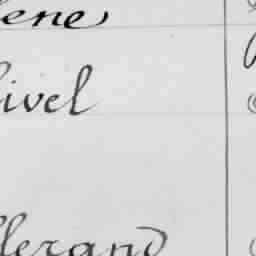 ene
ivel
llerand